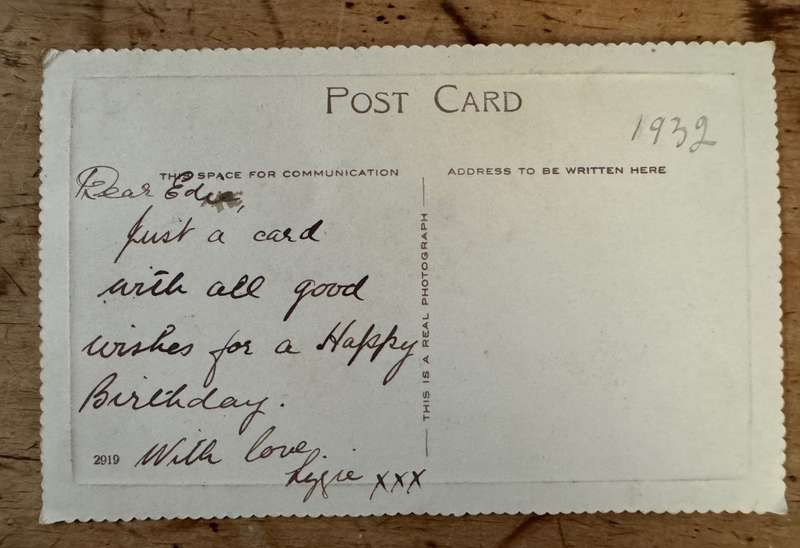 POST CARD
1932
THIS SPACE FOR COMMUNICATION
Dear Edie,
Just a card
with all good
wishes for a Happy
Birthday.
2919 With love,
Lizzie xxx
THIS IS A REAL PHOTOGRAPH
ADDRESS TO BE WRITTEN HERE